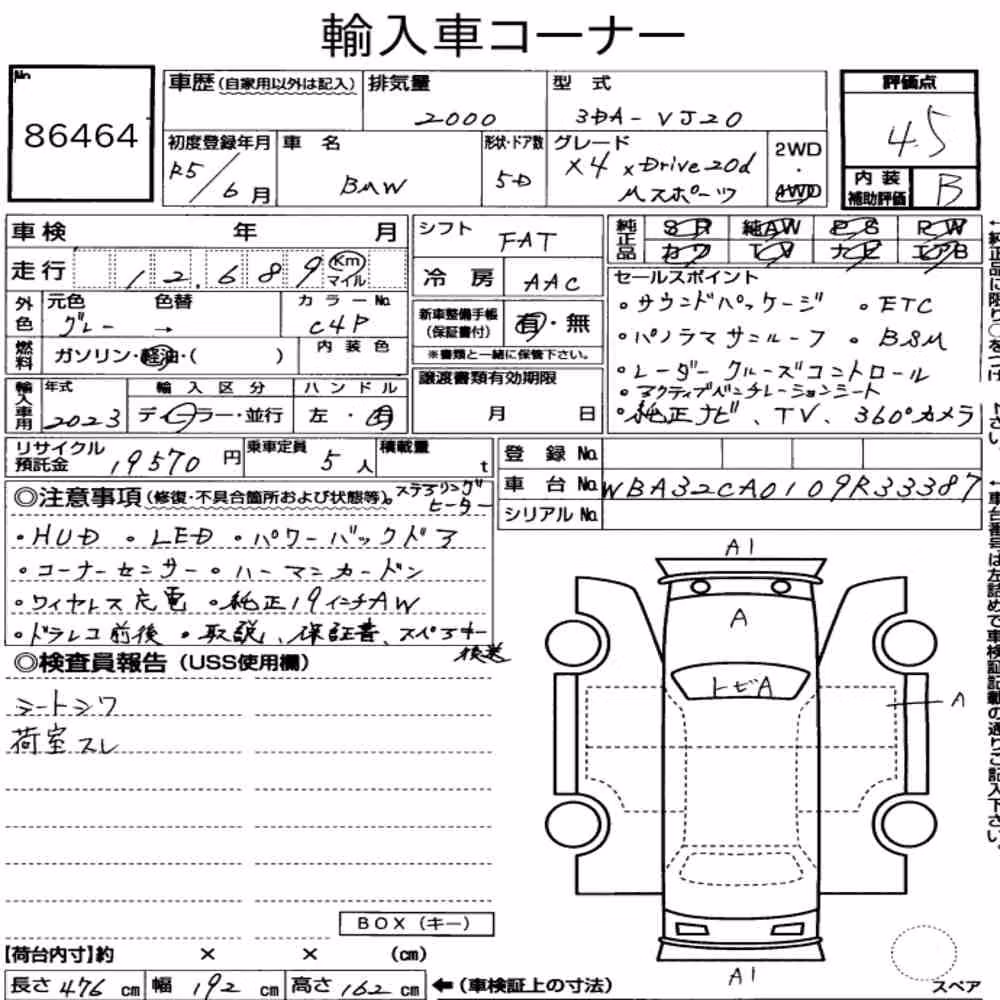 輸入車コーナー
No
86464
車歴(自家用以外は記入) 排気量 2000 型式 3DA-VJ20
評価点 4.5
初度登録年月 R5/6月 車名 BMW 形状・ドア数 5D グレード X4 xDrive20d Mスポーツ 2WD・4WD
内装補助評価 B
車検 年 月
シフト FAT
純正品 SR 純AW PS PW
カワ TV ナビ エアB
走行 12,689 Km マイル
冷房 AAC
外色 元色 グレー 色替 → カラーNo. C4P
新車整備手帳(保証書付) 有・無
※書類と一緒に保管下さい。
燃料 ガソリン・軽油・( ) 内装色
セールスポイント
・サウンドパッケージ ・ETC
・パノラマサンルーフ ・BSM
・レーダークルーズコントロール
・アクティブベンチレーションシート
・純正ナビ、TV、360°カメラ
輸入車用 年式 2023 輸入区分 ディーラー・並行 ハンドル 左・右
譲渡書類有効期限 月 日
リサイクル預託金 19570円 乗車定員 5人 積載量 t
登録No.
車台No. WBA32CA0109R33387
シリアルNo.
◎注意事項(修復・不具合箇所および状態等)。ステアリングヒーター
・HUD ・LED ・パワーバックドア
・コーナーセンサー ・ハーマンカードン
・ワイヤレス充電 ・純正19インチAW
・ドラレコ前後 ・取説、保証書、スペアキー
後送
◎検査員報告(USS使用欄)
シートシワ
荷室スレ
A1
A
トビA
A
A1
BOX(キー)
【荷台内寸】約 × × (cm)
長さ 476 cm 幅 192 cm 高さ 162 cm ←(車検証上の寸法)
スペア
←車台番号は左詰めで車検証記載の通りご記入下さい。